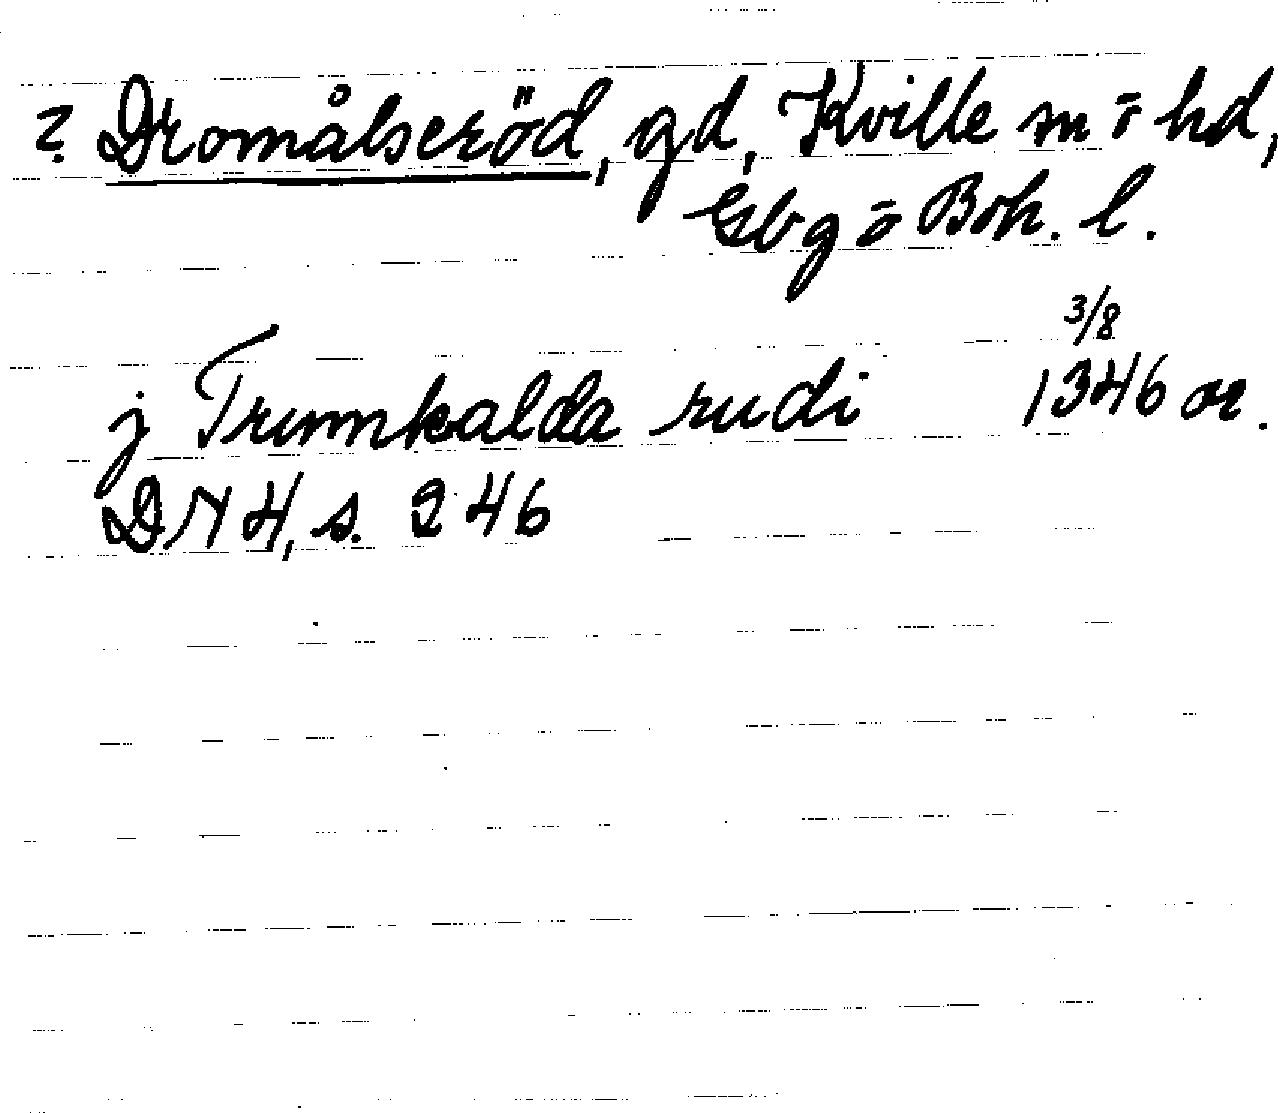 ? Dromålseröd, gd, Kville sn ō hd,
Gbg ō Boh. l.
3/8
j Trumkalda rudi 1346 or.
DN 4, s. 246